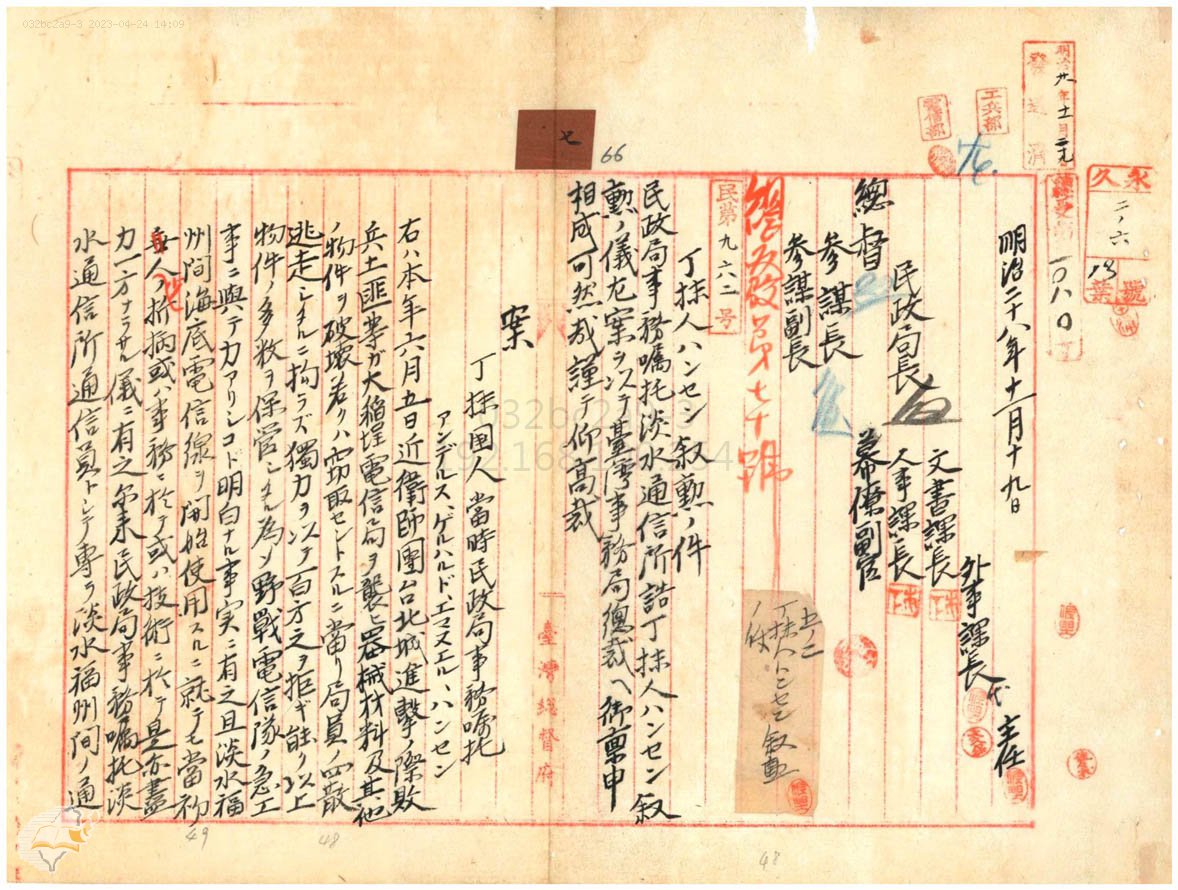 032bc2a9-3 2023-04-24 14:09
明治廿八年十一月二十九
發送濟
工兵部
郵便部
永久
二ノ六
13
號
葉
一〇八〇
明治二十八年十一月十九日
外事課長代
主任
文書課長
人事課長
民政局長
幕僚副官
總督
參謀長
參謀副長
民第九六二号
66
七
丁抹人ハンセン叙勲ノ件
民政局事務嘱托淡水通信所詰丁抹人ハンセン叙
勲ノ儀左案ヲ以テ臺灣事務局總裁ヘ御稟申
相成可然哉謹テ仰高裁
案
丁抹国人當時民政局事務嘱托
アンデルス、ゲルハルド、エマヌエル、ハンセン
右ハ本年六月五日近衛師團台北城進撃ノ際敗
兵土匪等ガ大稲埕電信局ヲ襲ヒ器械材料及其他
ノ物件ヲ破壊若クハ窃取セントスルニ當リ局員ノ四散
逃走シタルニ拘ラズ獨力ヲ以テ百方之ヲ拒ギ能ク以上
物件ノ多数ヲ保管シタル為メ野戰電信隊ノ急工
事ニ與テ力アリシコト明白ナル事実ニ有之且淡水福
州間海底電信線ヲ開始使用スルニ就テモ當初
ノ折柄或ハ事務ニ於テ或ハ技術ニ於テ是亦盡
力一方ナラサル儀ニ有之尓来民政局事務嘱托淡
水通信所通信員トシテ專ラ淡水福州間ノ通
臺灣總督府
丁抹人ハンセン叙勲
ノ件
48
48
49